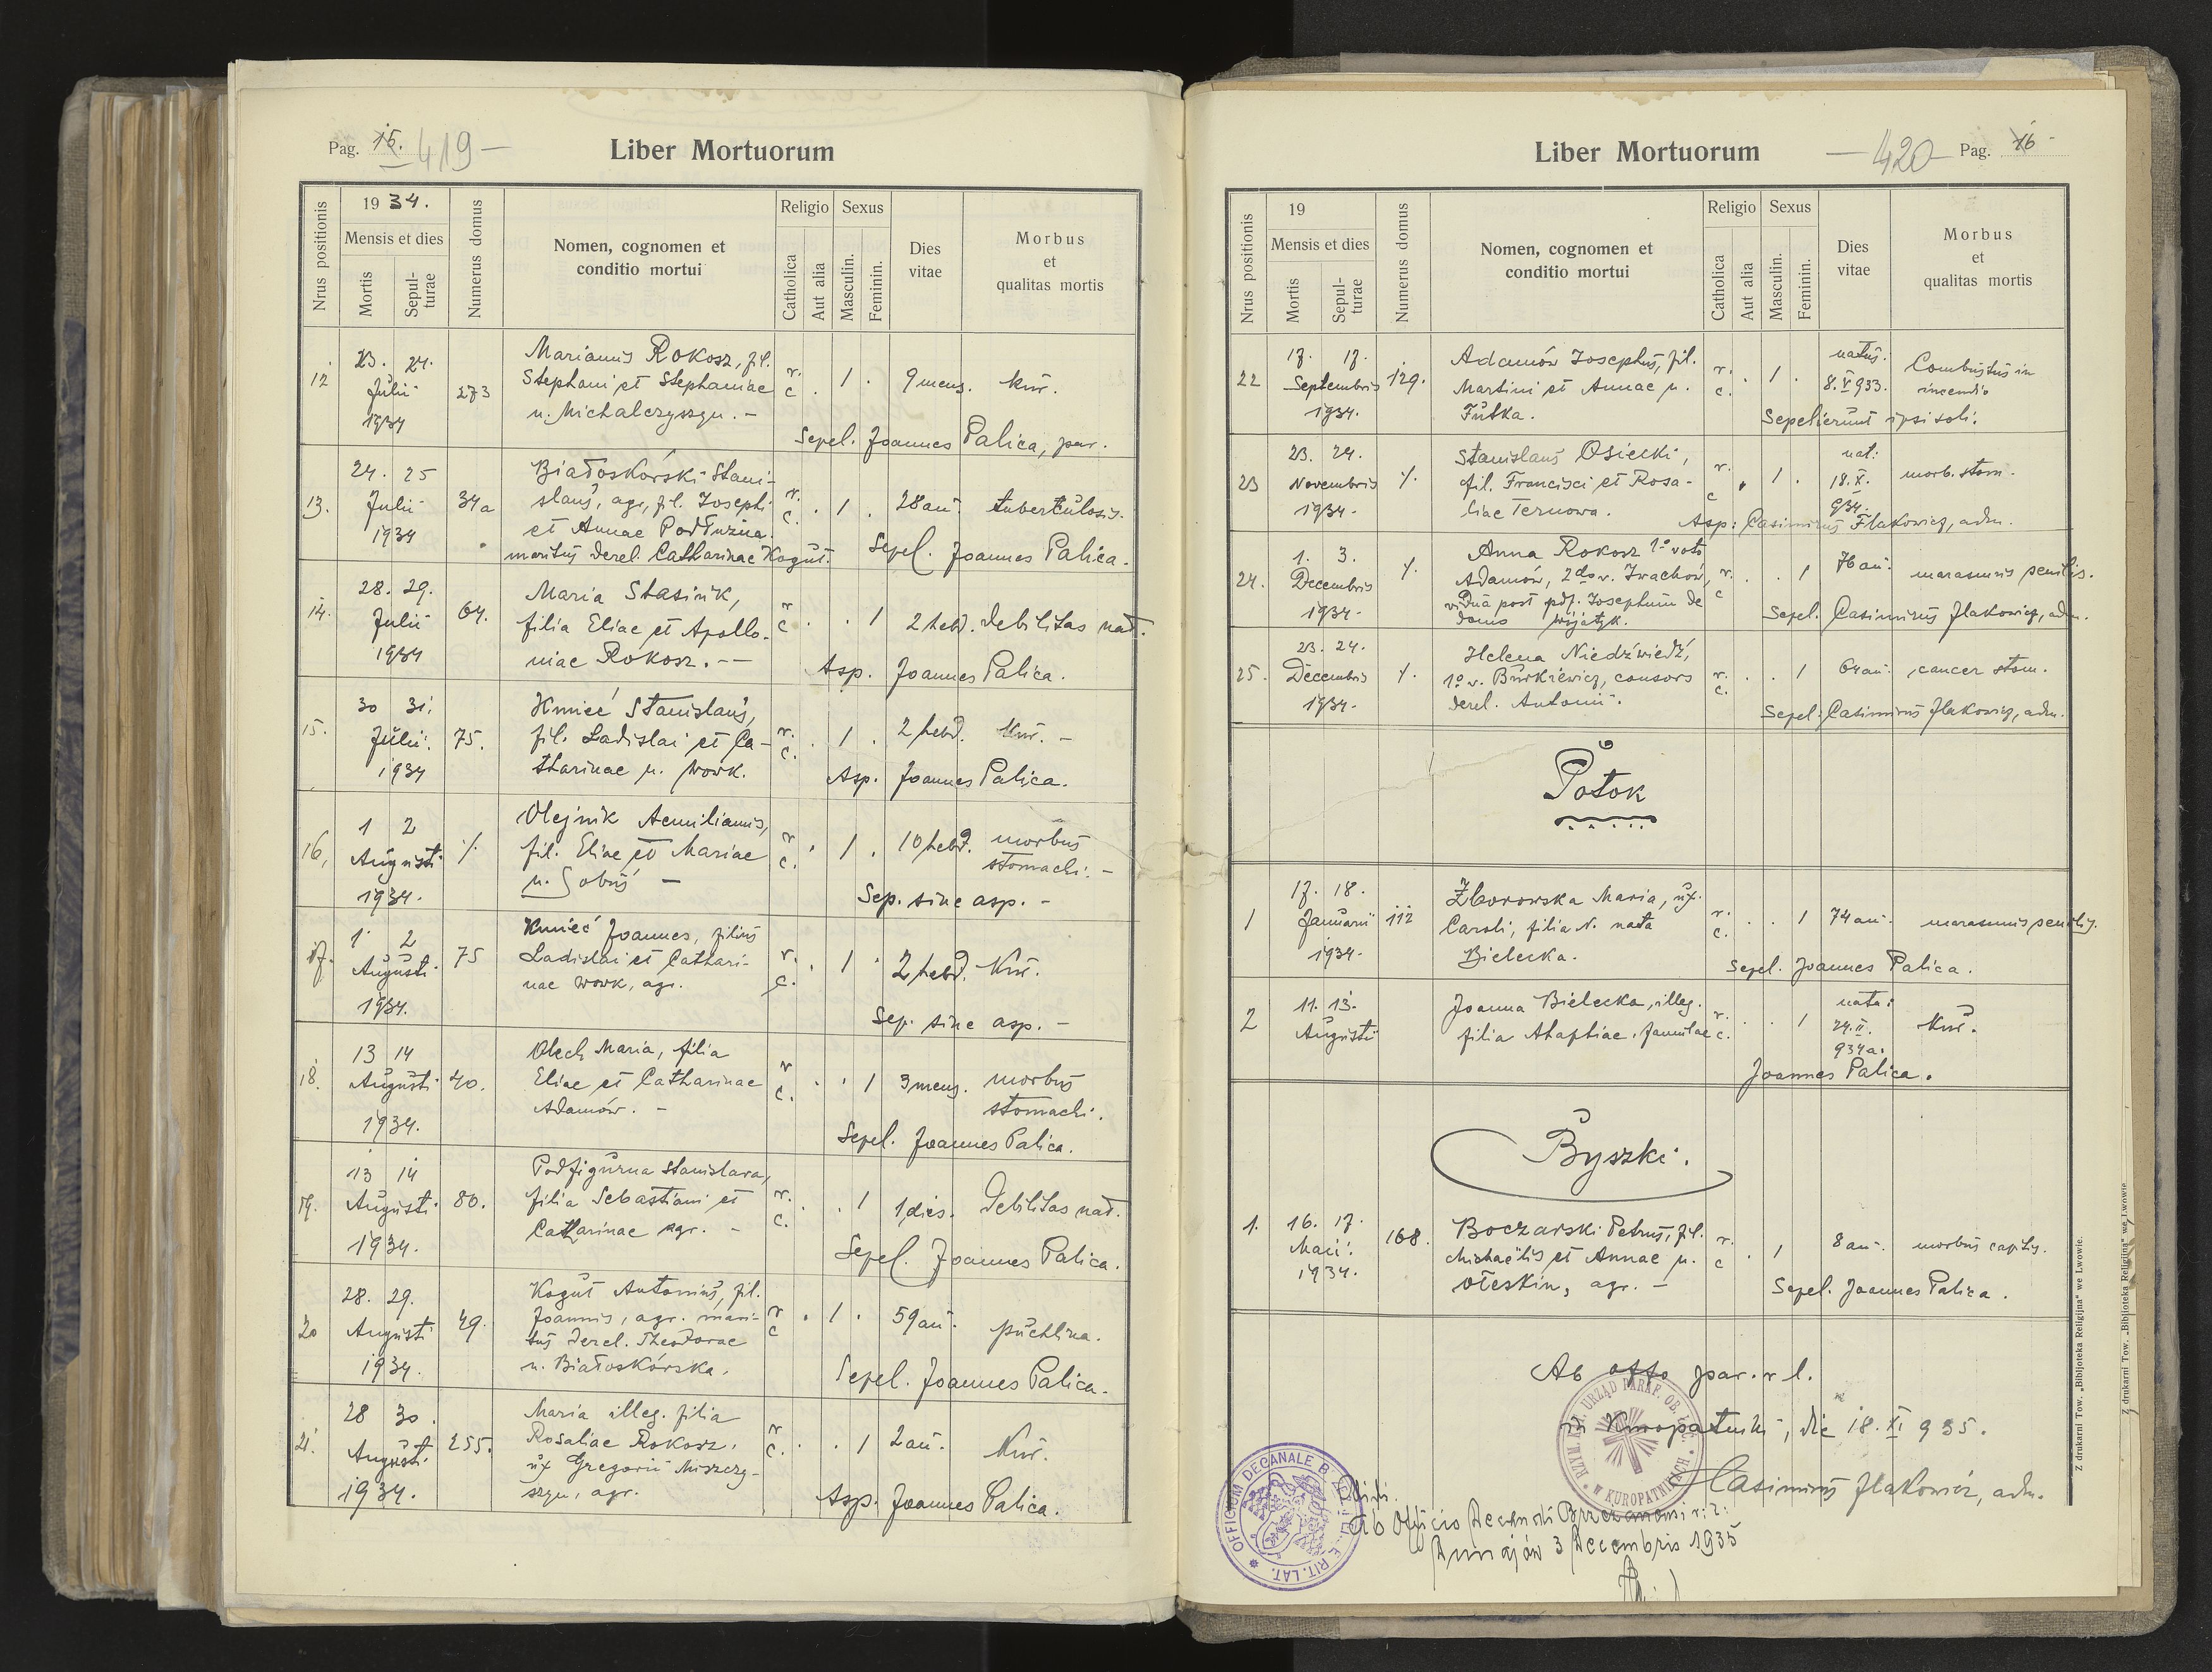 Pag. 15. 419 –
Liber Mortuorum
Nrus positionis
19 34.
Mensis et dies
Mortis
Sepul-
turae
Numerus domus
Nomen, cognomen et
conditio mortui
Religio
Catholica
Aut alia
Sexus
Masculin.
Feminin.
Dies
vitae
Morbus
et
qualitas mortis
12 23. 24. Julii 1934 273
Marianus Rokosz, fil.
Stephani et Stephaniae
n. Michalczyszyn. –
r. c. 1 9 mens.
Sepel. Joannes Palica, par.
13. 24. 25 Julii 1934 34a
Białoskórski Stani-
slaus, agr, fil. Josephi
et Annae Podłużna.
maritus derel. Catharinae Kogut.
r. c. 1 28 an. tuberculosis.
Sepel. Joannes Palica.
14. 28. 29. Julii 1934 64.
Maria Stasiuk,
filia Eliae et Apollo-
niae Rokosz. –
r c 1 2 hebd. debilitas nat.
Asp. Joannes Palica.
15. 30 31. Julii 1934 75.
Kmieć Stanislaus,
fil. Ladislai et Ca-
tharinae n. Wowk.
r. c. 1 2 hebd.
Asp. Joannes Palica.
16. 1 2 Augusti 1934. /.
Olejnik Aemilianus,
fil. Eliae et Mariae
n. Sobuś –
r c. 1 10 hebd. morbus
stomachi. –
Sep. sine asp. –
17. 1 2 Augusti 1934. 75
Kmieć Joannes, filius
Ladislai et Cathari-
nae Wowk, agr.
r. c. 1 2 hebd.
Sep. sine asp. –
18. 13 14 Augusti 1934. 40.
Olech Maria, filia
Eliae et Catharinae
Adamów. –
r c. 1 3 mens. morbus
stomachi.
Sepel. Joannes Palica.
19. 13 14 Augusti 1934. 80.
Podfigurna Stanislava,
filia Sebastiani et
Catharinae agr. –
r. c. 1 1 dies. debilitas nat.
Sepel. Joannes Palica.
20 28. 29. Augusti 1934. 49.
Kogut Antonius, fil.
Joannis, agr. mari-
tus derel. Theodorae
n. Białoskórska.
r c 1 59 an. puchlina.
Sepel. Joannes Palica.
21. 28 30. Augusti 1934. 255.
Maria illeg. filia
Rosaliae Rokosz.
ux Gregorii Miszczy-
szyn, agr.
r c. 1 2 an.
Asp. Joannes Palica.
Liber Mortuorum
– 420 – Pag. 16
Nrus positionis
19
Mensis et dies
Mortis
Sepul-
turae
Numerus domus
Nomen, cognomen et
conditio mortui
Religio
Catholica
Aut alia
Sexus
Masculin.
Feminin.
Dies
vitae
Morbus
et
qualitas mortis
22 17. 17. Septembris 1934. 129.
Adamów Josephus, fil.
Martini et Annae n.
Futka.
r. c. 1 natus: 8. V 933. Combustus in
incendio
Sepelierunt ipsi soli.
23 23. 24. Novembris 1934. /.
Stanislaus Osiecki,
fil. Francisci et Rosa-
liae Ternowa.
r. c 1 nat: 18. X. 934. morb. stom.
Asp: Casimirus Flakowicz, adm.
24. 1. 3. Decembris 1934. /.
Anna Rokosz 1º voto
Adamów, 2do v. Iwachów,
vidua post pdf. Josephum de
domo Wijatyk.
r. c 1 76 an. marasmus senilis.
Sepel. Casimirus Flakowicz, adm.
25. 23. 24. Decembris 1934. /.
Helena Niedźwiedź,
1º v. Burkiewicz, consors
derel. Antonii.
r. c. 1 64 an. cancer stom.
Sepel. Casimirus Flakowicz, adm.
Potok
1 17. 18. Januarii 1934. 112
Zborowska Maria, ux.
Caroli, filia N. nata
Bielecka.
r. c. 1 74 an. marasmus senilis.
Sepel. Joannes Palica.
2 11. 13. Augusti
Joanna Bielecka, illeg.
filia Ahaphiae, famulae
r. c. 1 nata: 24. II. 934 a.
Joannes Palica.
Byszki.
1. 16. 17. Maii. 1934. 168.
Boczarski Petrus, fil.
Michaëlis et Annae n.
Oleskin, agr. –
r. c 1 8 an. morbus capitis.
Sepel. Joannes Palica.
Ab offo par. r l.
in Kuropatniki, die 18. XI 935.
Casimirus Flakowicz, adm.
W KUROPATNIKACH
OFFICIUM DECANALE
RIT. LAT.
Vidi.
Ab Officio Decanali Brzezanensi r. l.
Narajów 3 Decembris 1935
Z drukarni Tow. „Bibljoteka Religijna" we Lwowie.
Z drukarni Tow. „Bibljoteka Religijna" we Lwowie